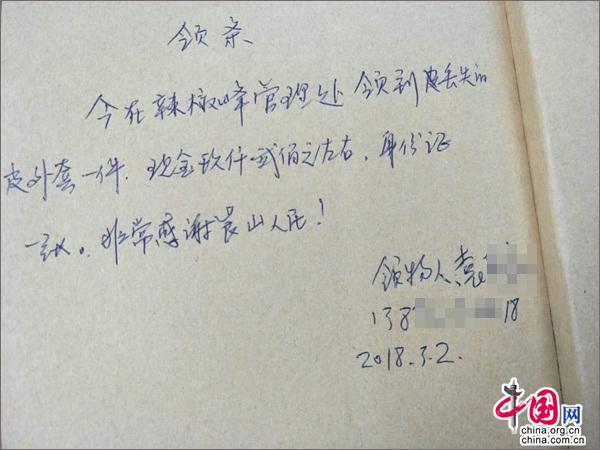 领条
今在辣椒峰管理处领到遗丢失的
皮外套一件.现金玖仟贰佰元左右.身份证
一张。非常感谢崀山人民!
领物人 袁
138 18
2018.3.2.
中国网
china.org.cn
china.com.cn